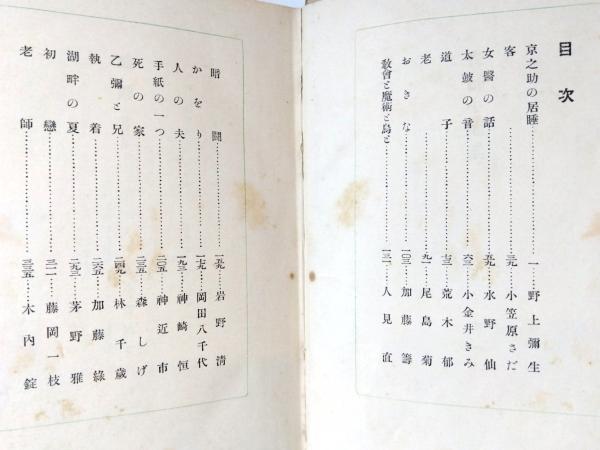 目次
京之助の居睡……一 野上彌生
客……三九 小笠原さだ
女醫の話……五九 水野仙
太皷の音……六三 小金井きみ
道子……七三 荒木郁
老……九一 尾島菊
おきな……一〇三 加藤籌
敎會と魔術と鳥と……一三一 人見直
暗鬪……一五九 岩野淸
かをり……一七九 岡田八千代
人の夫……一九三 神崎恒
手紙の一つ……二〇五 神近市
死の家……二三五 森しげ
乙彌と兄……二四九 林千歲
執着……二六五 加藤綠
湖畔の夏……二九三 茅野雅
初戀……三一一 藤岡一枝
老師……三三五 木內錠